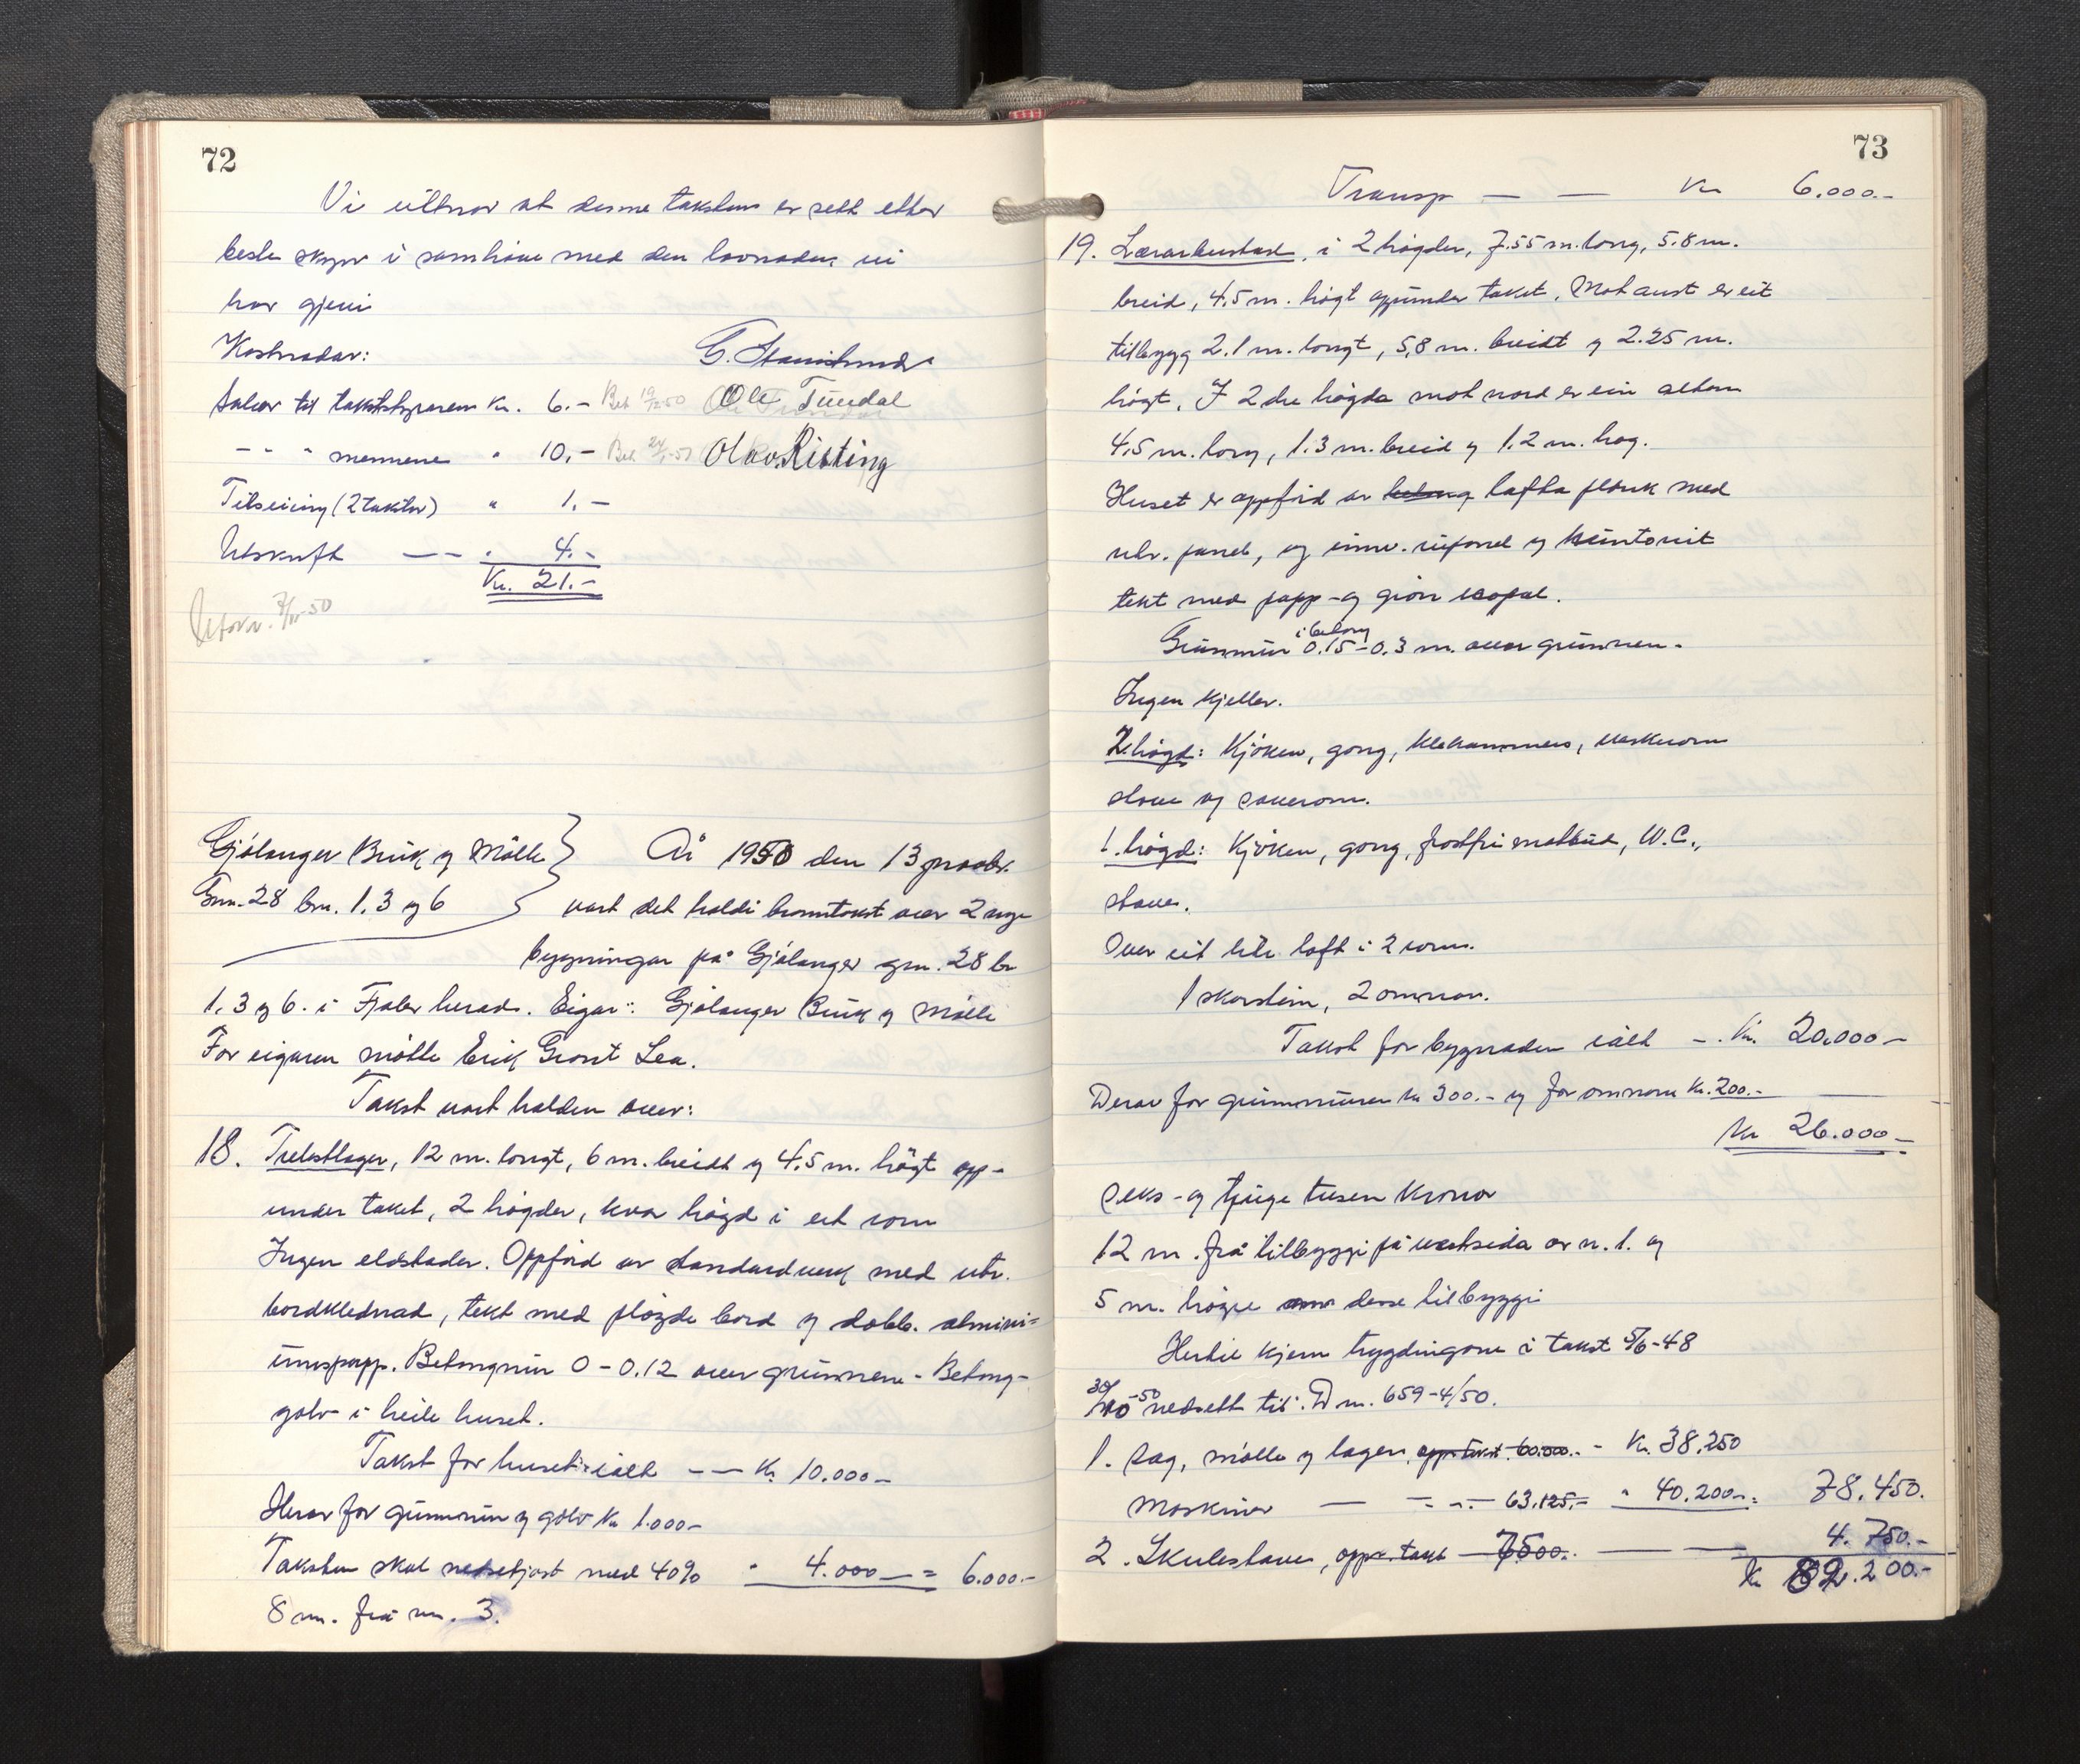 72
Vi vitnar at denne taksten er sett etter
beste skyn i samhøve med den lovnaden vi
har gjevi
Kostnadar:
Ole Tundal
Salær til takststyraren Kr. 6.- Bet 19/12-50
- " - " mennene " 10,- Bet
Olav Risting
Tilseiing (2 takstar) " 1.-
Utskrift — — " 4.-
Kr. 21.-
Utskr. 7/11-50
Gjølanger Bruk og Mølle
Gnr. 28 bnr. 1.3 og 6
År 1950 den 13 novbr.
vart det haldi branntakst over 2 nye
bygningar på Gjølanger gnr. 28 br
1.3 og 6. i Fjaler herad. Eigar: Gjølanger Bruk og Mølle
For eigaren møtte Erik Grant Lea.
Takst vart halden over:
18. Trelastlager, 12 m. langt, 6 m. breidt og 4.5 m. høgt opp-
under taket, 2 høgder, kvar høgd i eit rom
Ingen eldstader. Oppførd av standardverk med utv.
bordklednad, tekt med pløgde bord og dobb. alumini-
umspapp. Betongmur 0-0.12 over grunnen - Betong-
golv i heile huset.
Takst for huset ialt — — Kr. 10.000 -
Herav for grunnmur og golv Kr 1.000 -
Taksten skal nedsetjast med 40% " 4.000 — = 6.000.-
8 m. frå nr. 3.
73
Transp — — Kr 6.000.-
19. Lærarbustad, i 2 høgder, 7.55 m. lang, 5.8 m.
breid, 4.5 m. høgt oppunder taket. Mot aust er eit
tilbygg 2.1 m. langt, 5,8 m. breidt og 2.25 m.
høgt. I 2dre høgda mot nord er ein altan
4,5 m. lang, 1.3 m. breid og 1.2 m. høg.
Huset er oppførd av betong lafta plank med
utv. panel, og innv. rupanel og huntonit
tekt med papp- og
Grunnmur i betong 0.15-0.3 m. over grunnen.
Ingen kjellar.
2. høgd: Kjøken, gang, klekammers, vaskerom
stove og soverom.
1. høgd: Kjøken, gang, frostfri matbud, W.C.,
stove.
Over eit lite loft i 2 rom.
1 skorstein, 2 omnar.
Takst for bygnaden ialt -. Kr. 20.000 -
Derav for grunnmuren kr 300.- og for omnane Kr. 200.-
Kr 26.000 -
seks- og tjuge tusen kronor
12 m. frå tilbyggi på vestsida av nr. 1. og
5 m. høgre enn desse tilbyggi
Hertil kjem bygdingane i takst 5/6-48
30/10-50 nedsett til: D nr. 659-4/50.
1. Sag, mølle og lager, oppr. takst. 60.000.- - Kr. 38.250
Maskiner — — - - 63.125.- " 40.200.- 78.450.
2. Skulestove, oppr. takst — 7500.- — — 4.750.-
Kr 82.200.-